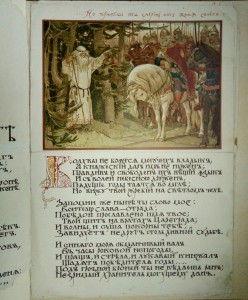 Но примешь ты смерть отъ коня своего
Волхвы не боятся могучихъ владыкъ,
А княжескій даръ имъ не нуженъ;
Правдивъ и свободенъ ихъ вѣщій языкъ
И съ волей небесною друженъ.
Грядущіе годы таятся во мглѣ;
Но вижу твой жребій на свѣтломъ челѣ.
Запомни же нынѣ ты слово мое:
Воителю слава - отрада;
Побѣдой прославлено имя твое;
Твой щитъ на вратахъ Цареграда;
И волны, и суша покорны тебѣ;
Завидуетъ недругъ столь дивной судьбѣ.
И синяго моря обманчивый валъ
Въ часы роковой непогоды,
И пращъ, и стрѣла, и лукавый кинжалъ
Щадятъ побѣдителя годы...
Подъ грозной броней ты не вѣдаешь ранъ;
Незримый хранитель могущему данъ.